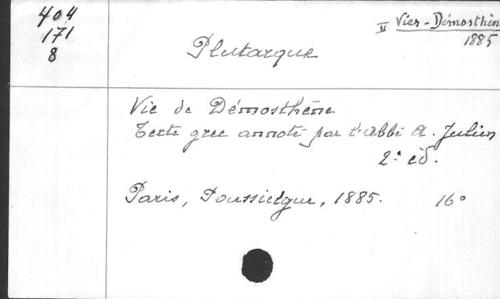 404
171
8
II Vies-Démosthèn
1885
Plutarque
Vie de Démosthène
Texte grec annoté par l'abbé A. Julien
2e éd.
Paris, Poussielgue, 1885. 16°